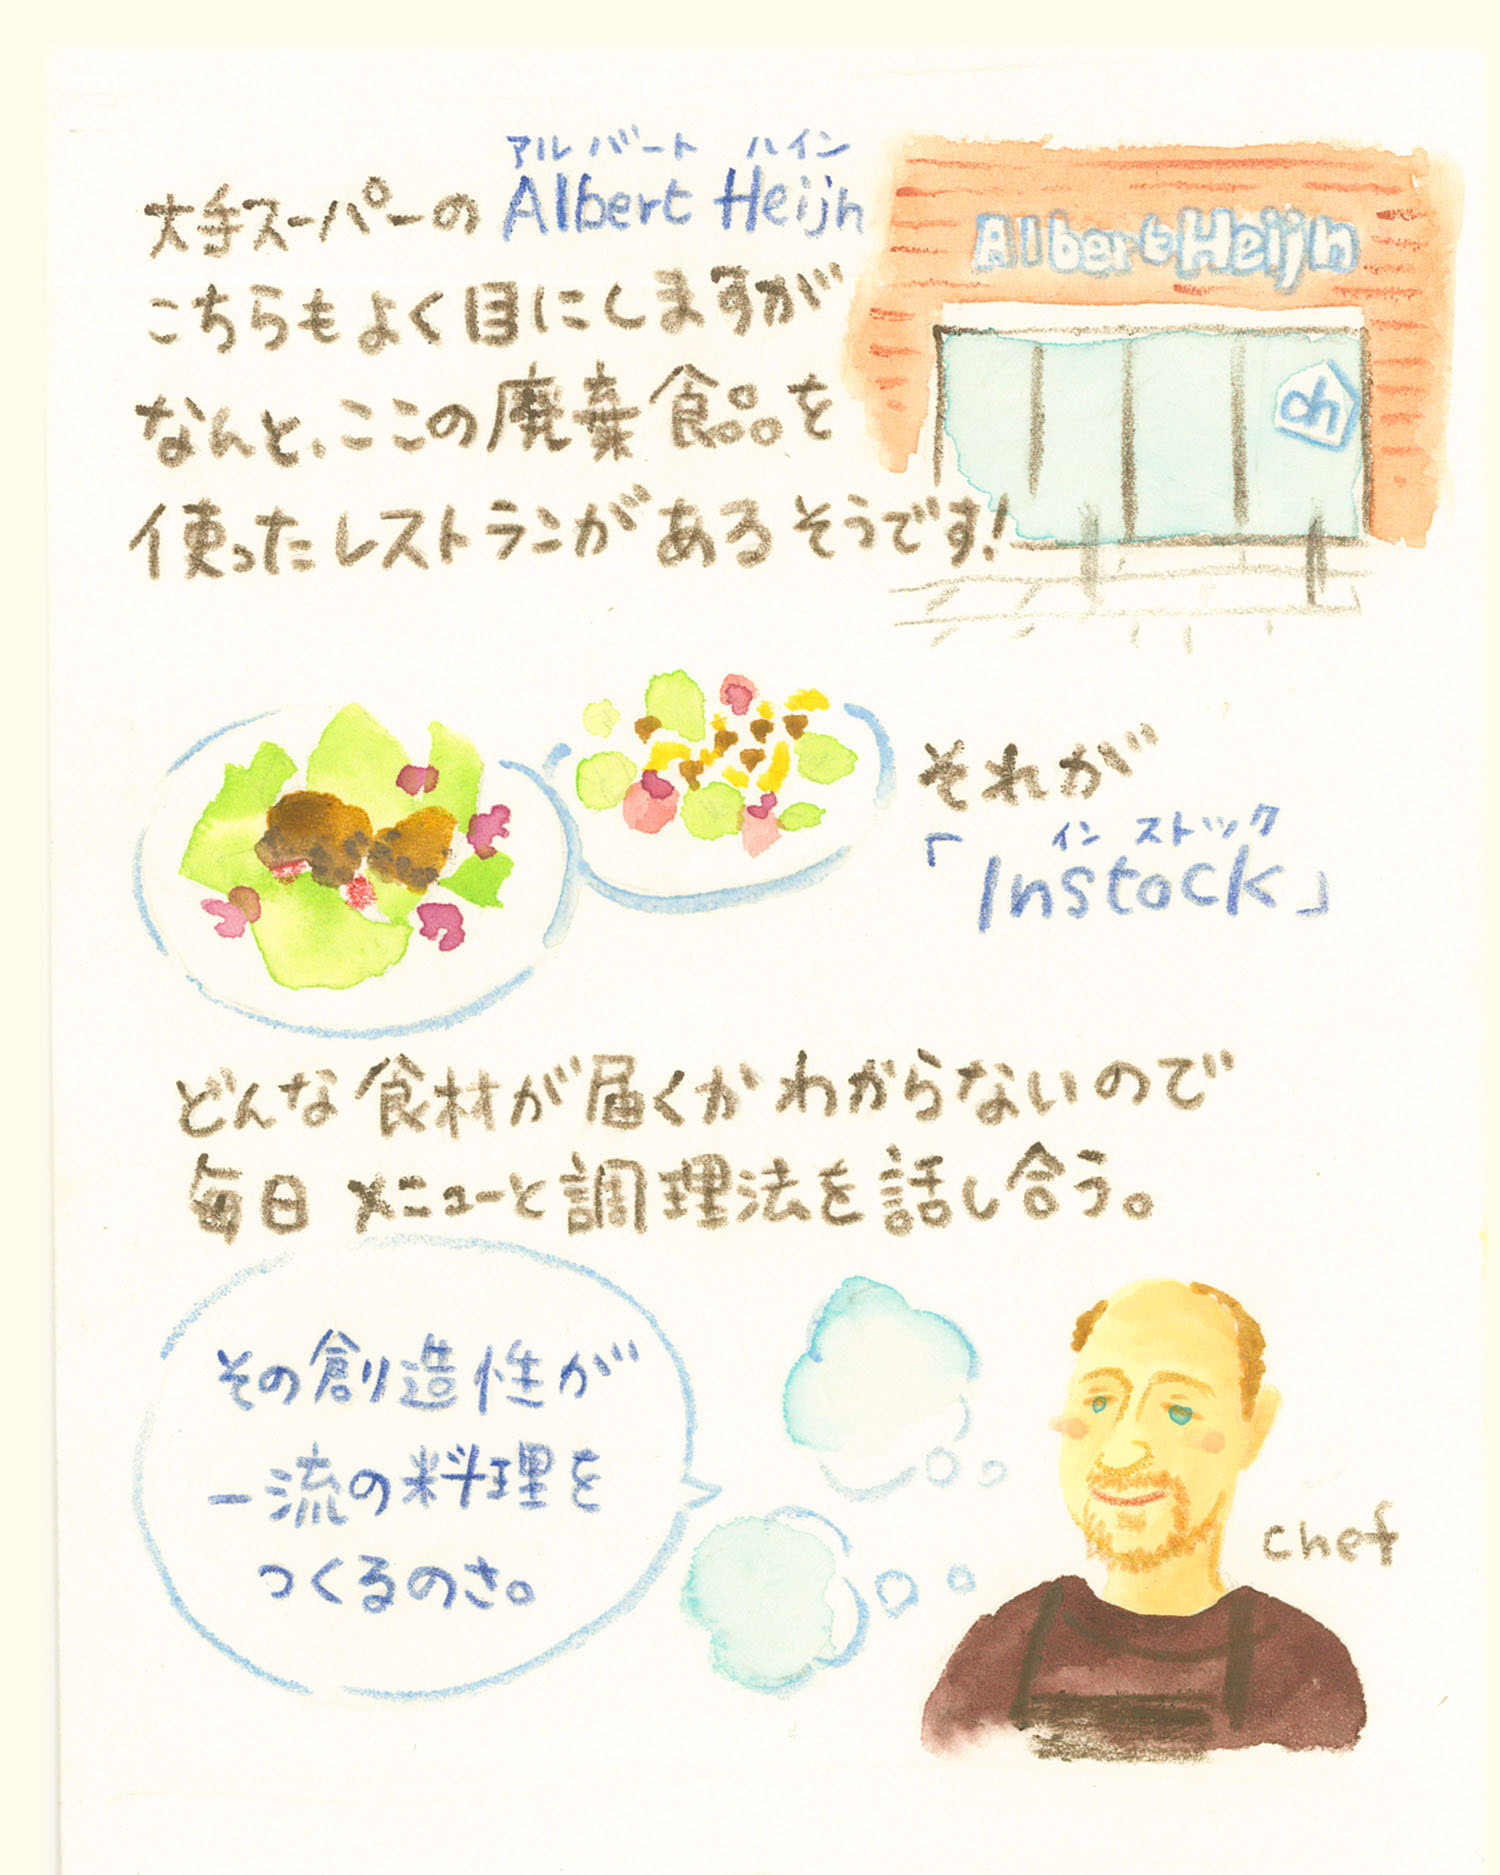 アルバート ハイン
大手スーパーの Albert Heijn
こちらもよく目にしますが
なんと、ここの廃棄食品を
使ったレストランがあるそうです!
Albert Heijn
ah
それが
イン ストック
「Instock」
どんな食材が届くかわからないので
毎日 メニューと調理法を話し合う。
その創造性が
一流の料理を
つくるのさ。
chef